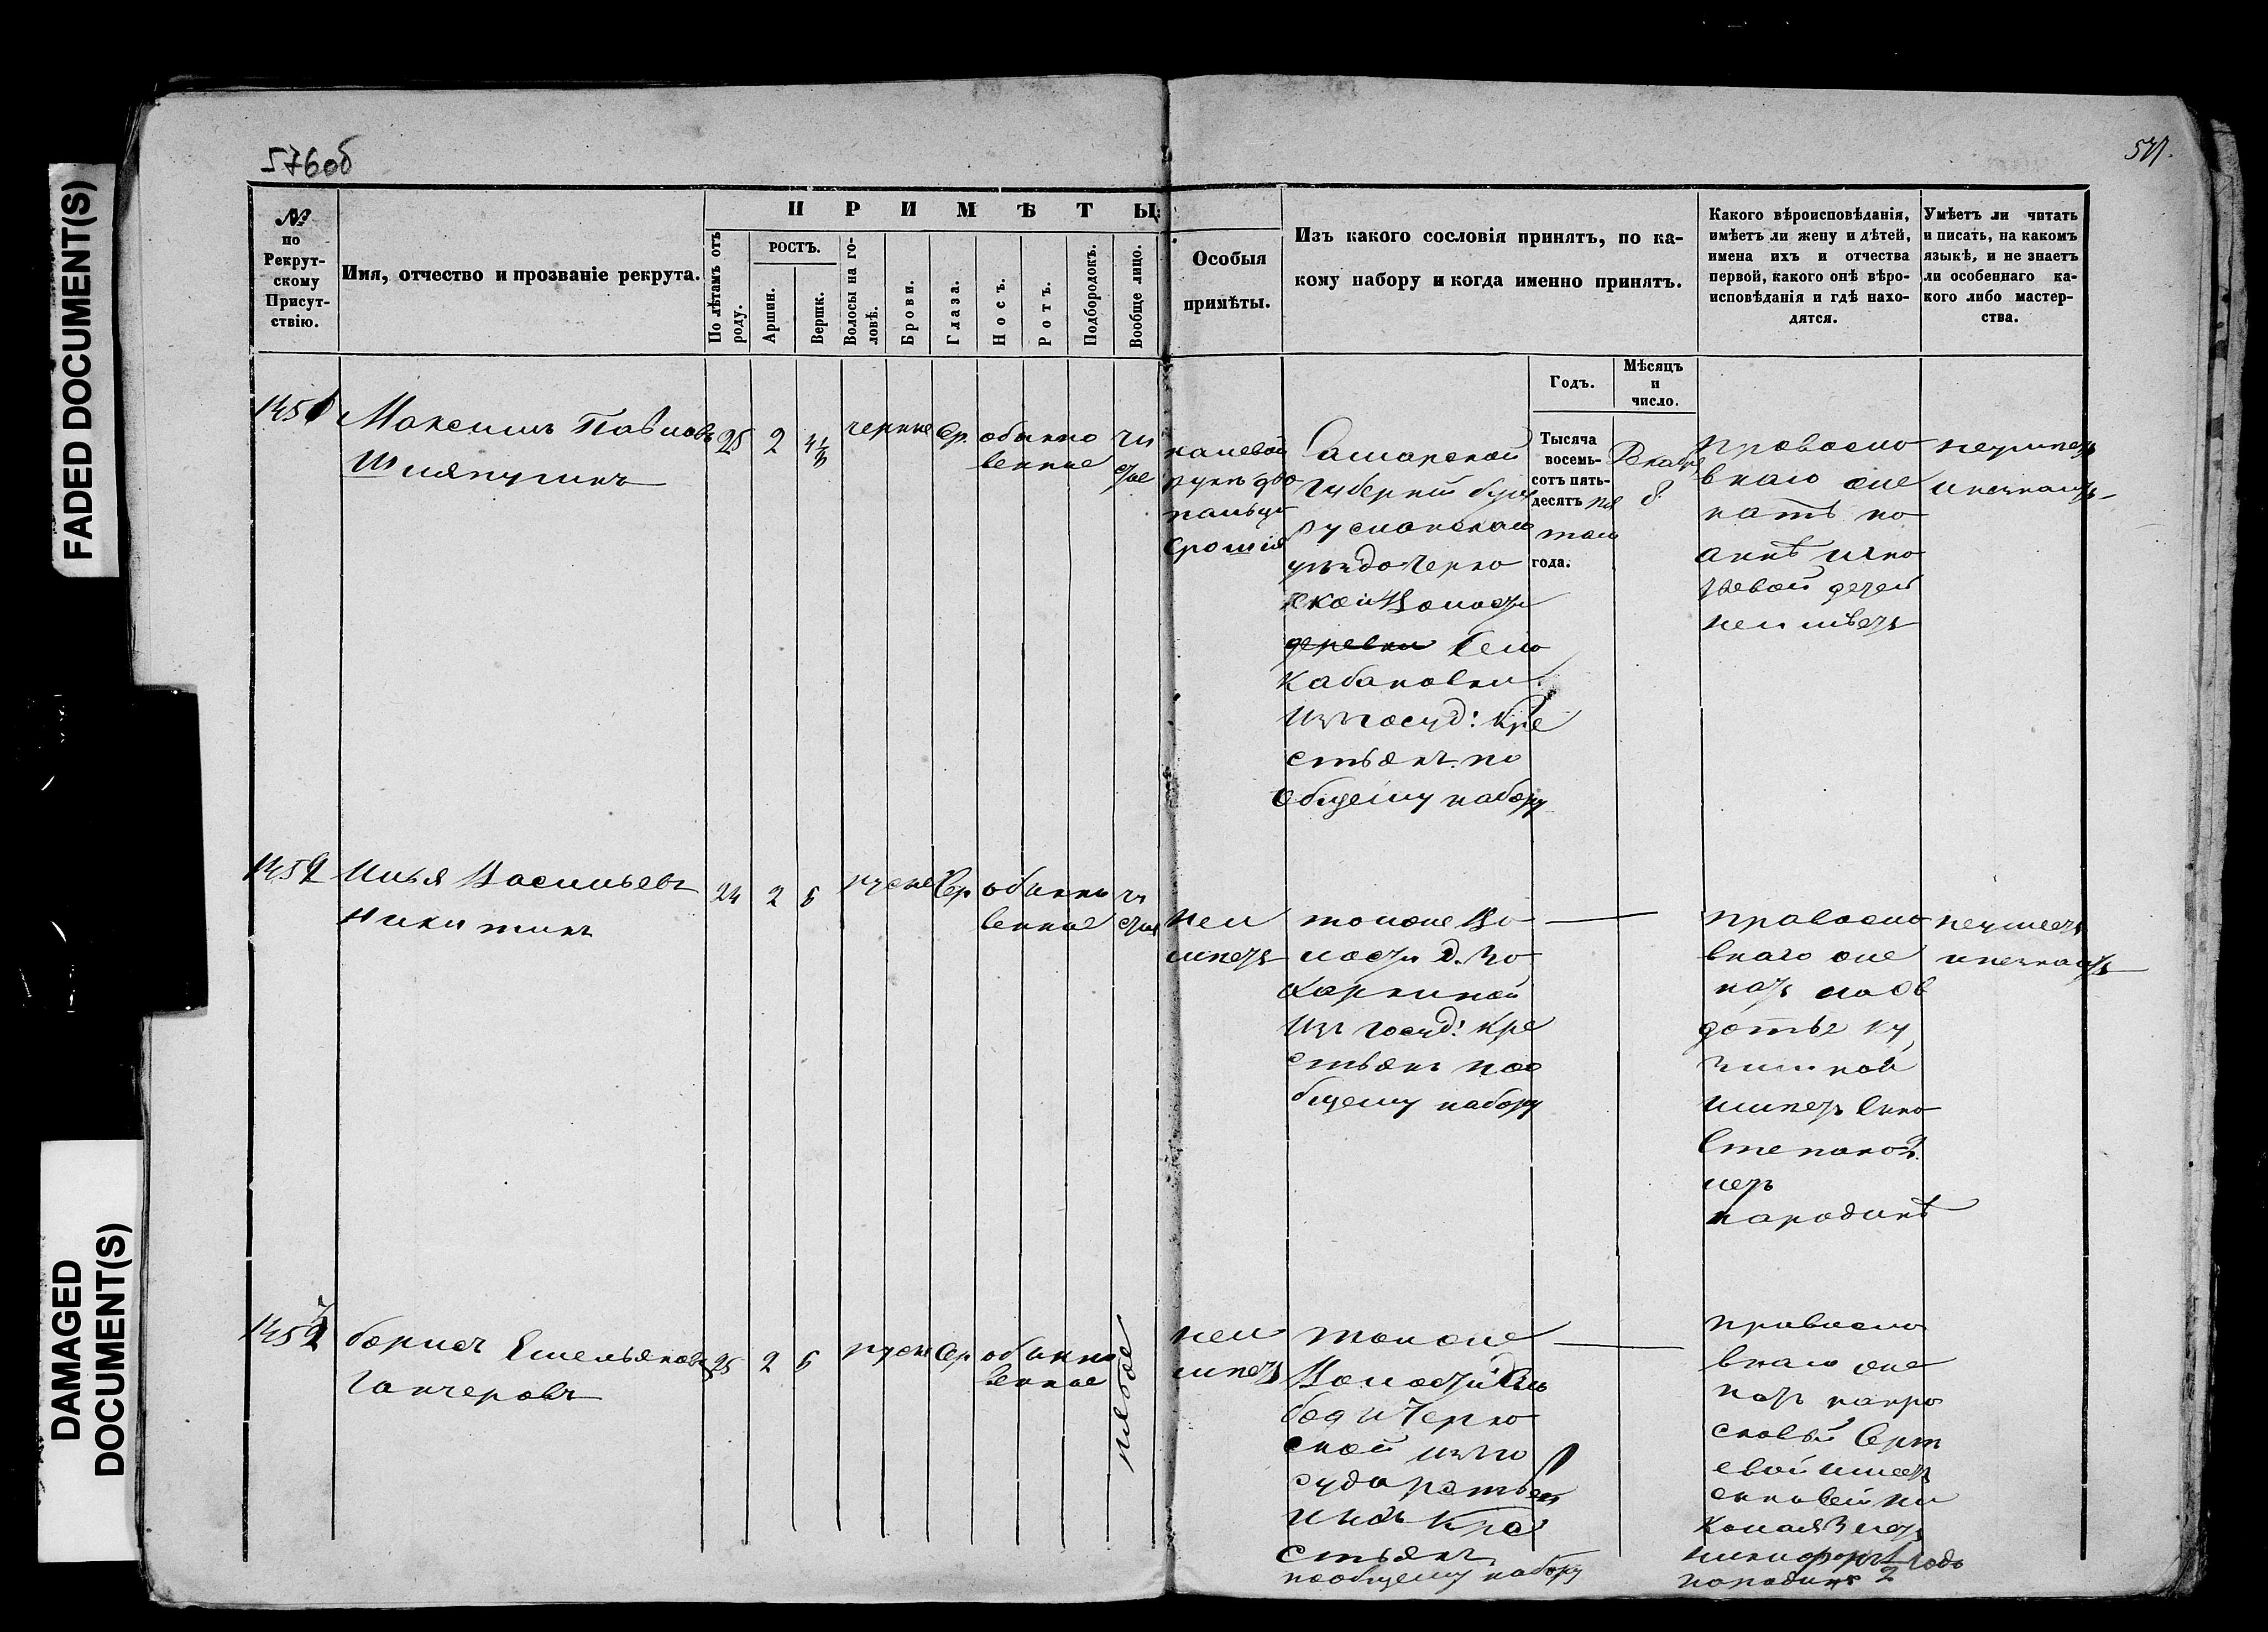 FADED DOCUMENT(S)
DAMAGED
DOCUMENT(S)
576об
577.
№
по
Рекрут-
скому
Присут-
ствію.
Имя, отчество и прозваніе рекрута.
ПРИМѢТЫ.
По лѣтамъ отъ
роду.
РОСТЪ.
Аршин.
Вершк.
Волосы на го-
ловѣ.
Брови.
Глаза.
Носъ.
Ротъ.
Подбородокъ.
Вообще лицо.
Особыя
примѣты.
Изъ какого сословія принятъ, по ка-
кому набору и когда именно принятъ.
Какого вѣроисповѣданія,
имѣетъ ли жену и дѣтей,
имена ихъ и отчества
первой, какого онѣ вѣро-
исповѣданія и гдѣ нахо-
дятся.
Умѣетъ ли читать
и писать, на какомъ
языкѣ, и не знаетъ
ли особеннаго ка-
кого либо мастер-
ства.
Годъ.
Мѣсяцъ
и
число.
1451
Максимъ Павловъ
Шляпугинъ
25
2
черные
Сер.
обыкно
венные
чи
стое
на левой
руке два
пальца
Самарской
Губерніи Бугу
русланскаго
уезда Черко
ской Волости
деревни Село
Кабановки
Изъ госуд: Кре
стьянъ. по
общему набору
Тысяча
восемь-
сотъ пять-
десятъ пя
томъ
года.
Декабр
8.
Правосла
внаго же
натъ на
Аннѣ Игна
тьевой детей
неимѣетъ
неумѣетъ
и незнаетъ
1452
Илья Васильевъ
Никитинъ
24
2
6
русые
Сер
обыкно
венные
чи
стое
неи
мѣетъ
тойже Во
лости Д.
Изъ госуд: Кре
стьянъ поо
бщему набору
Правосла
внаго же
натъ на Ев
дотье
имѣетъ сына
Степана
летъ
народинѣ
неумеетъ
и незнаетъ
145
Борисъ Емельяновъ
Ганчеровъ
25
2
6
русые
Сер
обыкно
венные
рябое
неи
мѣетъ
тойже
Волости Сло
боды Черко
ской изъ го
сударствен
ныхъ Кре
стьянъ
пообщему набору
Правосла
внаго же
натъ напро
сковьи Серг
евой имеетъ
сыновей Ни
колая 3 летъ
Никифора 1/2 года
народинѣ